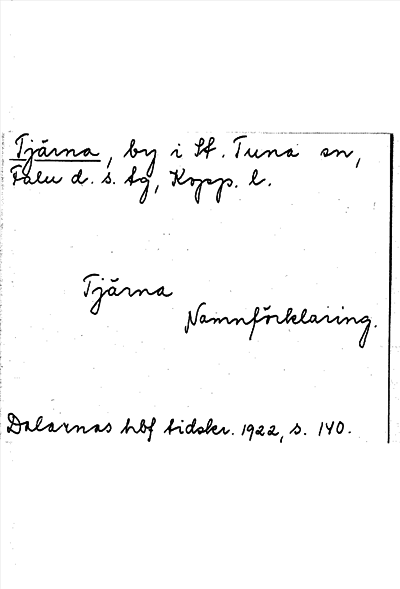 Tjärna, by i St. Tuna sn,
Falu d. s. tg, Kopp. l.
Tjärna
Namnförklaring.
Dalarnas hbf tidskr. 1922, s. 140.